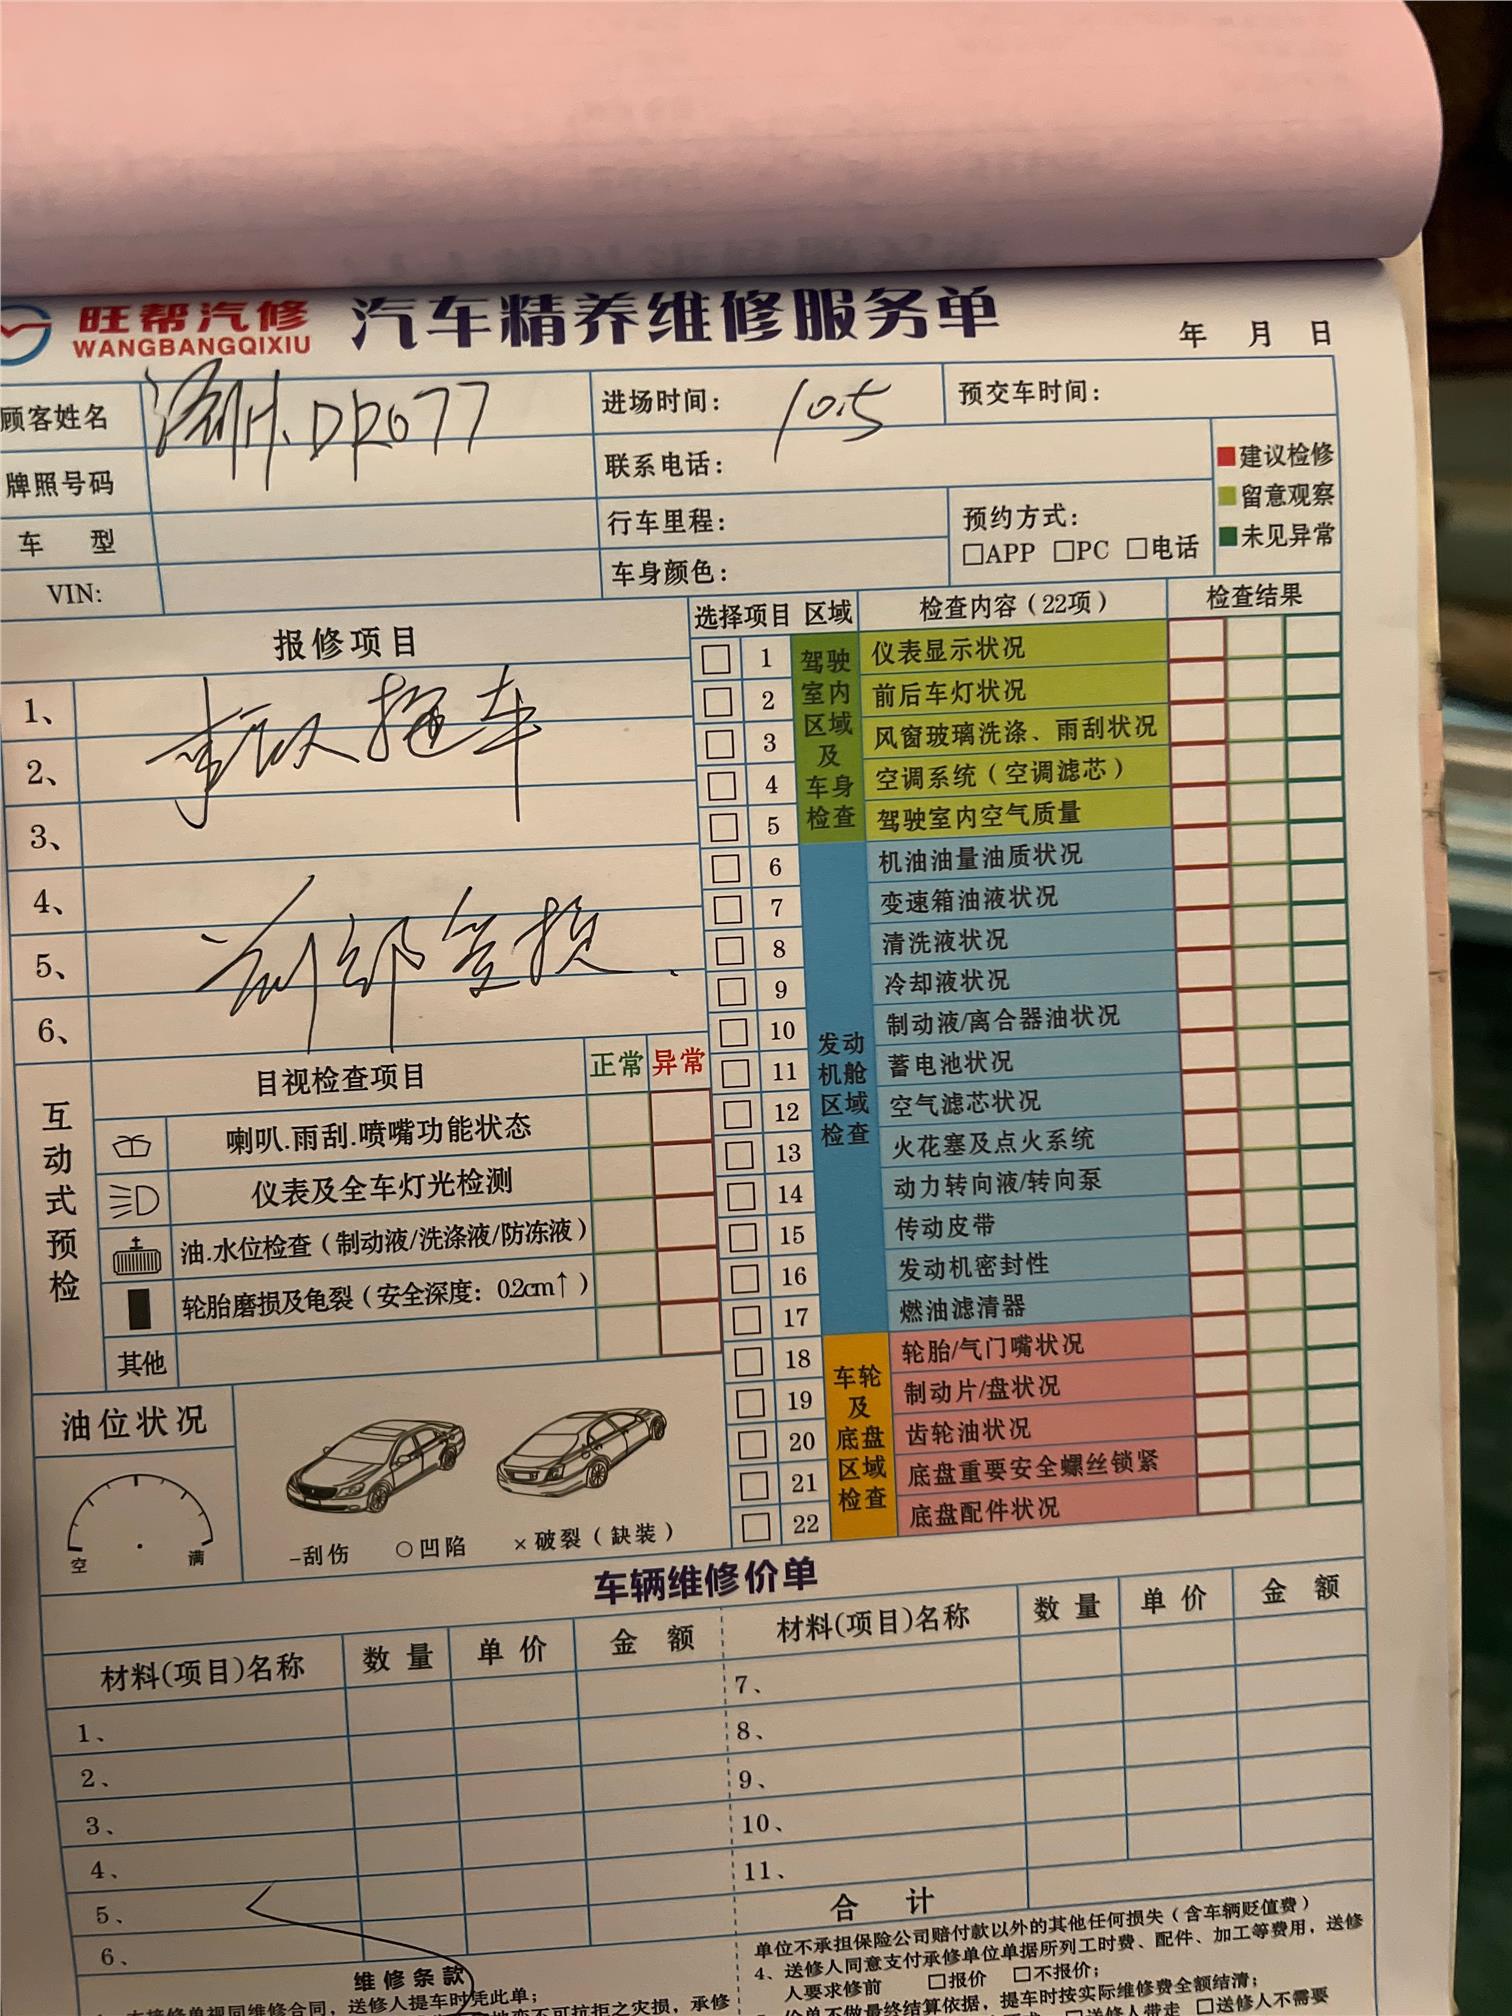 旺帮汽修 汽车精养维修服务单
WANGBANGQIXIU
年 月 日
顾客姓名 DR077 进场时间: 10.5 预交车时间:
牌照号码 联系电话:
车 型 行车里程: 预约方式:
□APP □PC □电话
VIN: 车身颜色:
建议检修
留意观察
未见异常
报修项目
1、
2、 事故拖车
3、
4、
5、 前部受损.
6、
选择项目 区域 检查内容（22项） 检查结果
驾驶室内区域及车身检查
1 仪表显示状况
2 前后车灯状况
3 风窗玻璃洗涤、雨刮状况
4 空调系统（空调滤芯）
5 驾驶室内空气质量
发动机舱区域检查
6 机油油量油质状况
7 变速箱油液状况
8 清洗液状况
9 冷却液状况
10 制动液/离合器油状况
11 蓄电池状况
12 空气滤芯状况
13 火花塞及点火系统
14 动力转向液/转向泵
15 传动皮带
16 发动机密封性
17 燃油滤清器
车轮及底盘区域检查
18 轮胎/气门嘴状况
19 制动片/盘状况
20 齿轮油状况
21 底盘重要安全螺丝锁紧
22 底盘配件状况
互动式预检
目视检查项目 正常 异常
喇叭.雨刮.喷嘴功能状态
仪表及全车灯光检测
油.水位检查（制动液/洗涤液/防冻液）
轮胎磨损及龟裂（安全深度：0.2cm↑）
其他
油位状况
空 满
-刮伤 ○凹陷 ×破裂（缺装）
车辆维修价单
材料(项目)名称 数量 单价 金额 材料(项目)名称 数量 单价 金额
1、 7、
2、 8、
3、 9、
4、 10、
5、 11、
6、 合 计
维修条款
本接修单视同维修合同，送修人提车时凭此单；
不可抗拒之灾损，承修
单位不承担保险公司赔付款以外的其他任何损失（含车辆贬值费）
4、送修人同意支付承修单位单据所列工时费、配件、加工等费用，送修
人要求修前 □报价 □不报价；
价单不做最终结算依据，提车时按实际维修费全额结清；
□送修人带走 □送修人不需要